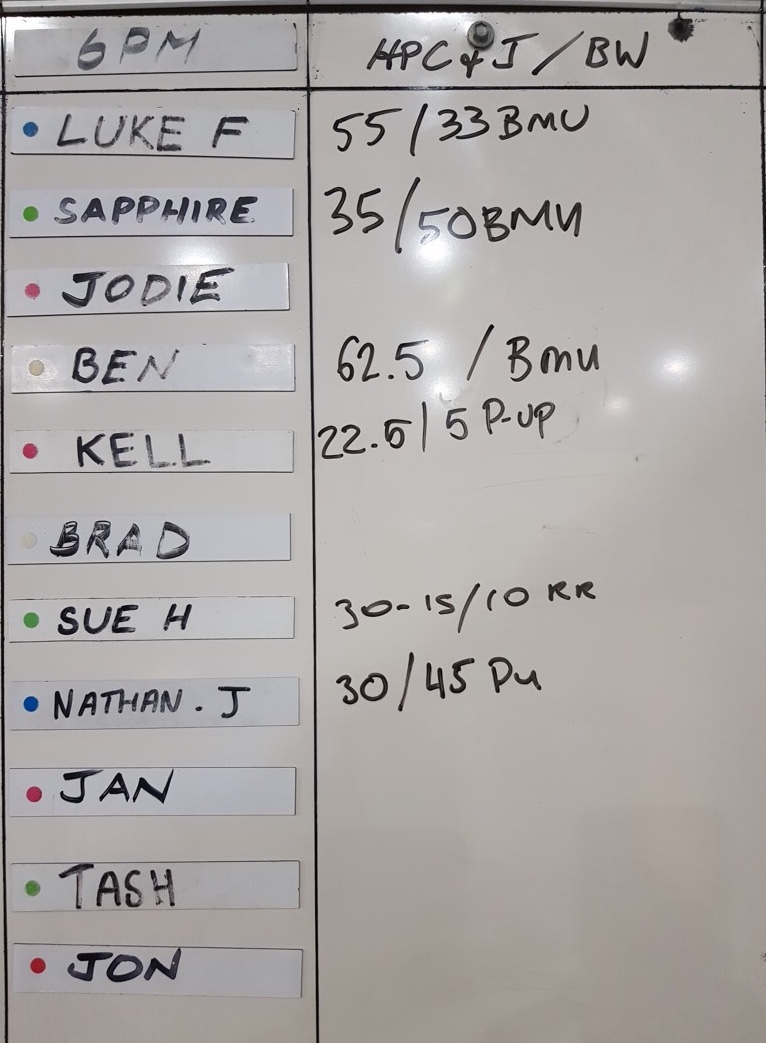 6PM HPC & J / BW
LUKE F 55 / 33 BMU
SAPPHIRE 35 / 50 BMU
JODIE
BEN 62.5 / BMU
KELL 22.5 / 5 P-UP
BRAD
SUE H 30-15 / 10 RR
NATHAN . J 30 / 45 Pu
JAN
TASH
JON